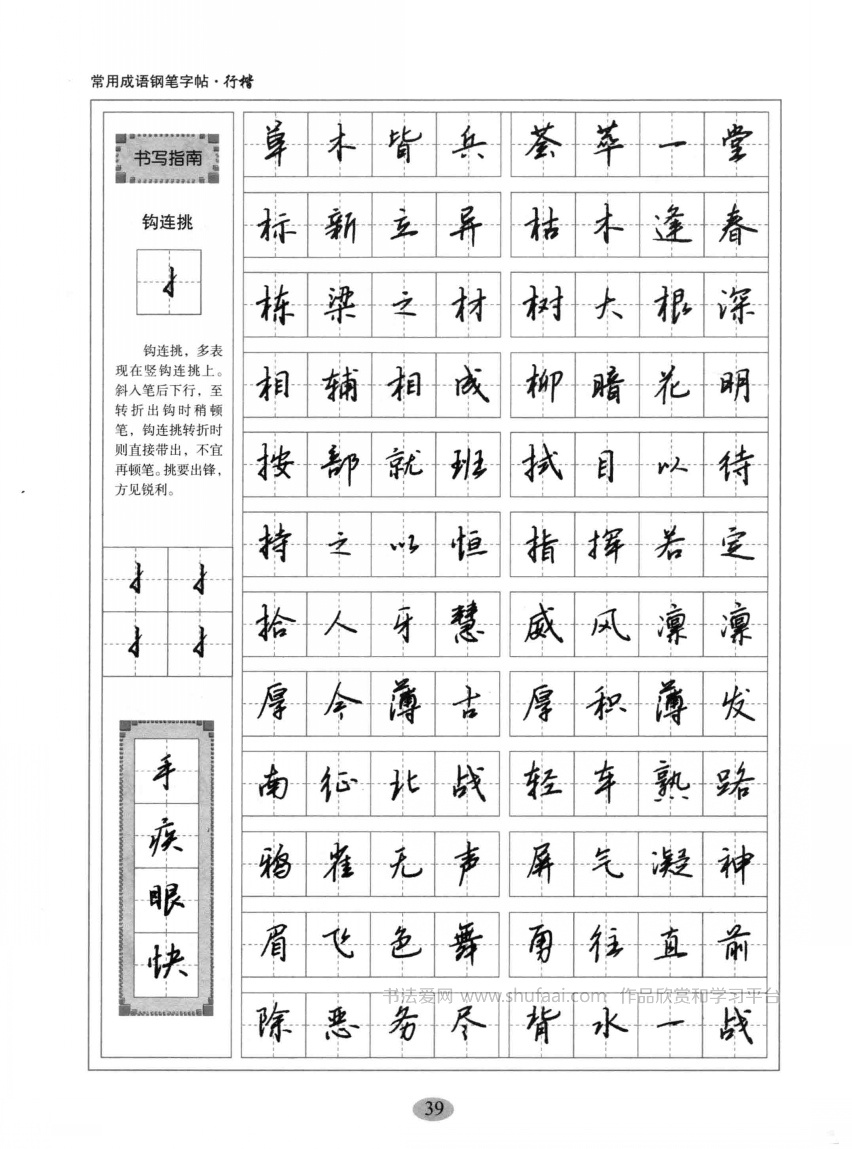 常用成语钢笔字帖·行楷
书写指南
钩连挑
钩连挑，多表
现在竖钩连挑上。
斜入笔后下行，至
转折出钩时稍顿
笔，钩连挑转折时
则直接带出，不宜
再顿笔。挑要出锋，
方见锐利。
手
疾
眼
快
草木皆兵 荟萃一堂
标新立异 枯木逢春
栋梁之材 树大根深
相辅相成 柳暗花明
按部就班 拭目以待
持之以恒 指挥若定
拾人牙慧 威风凛凛
厚今薄古 厚积薄发
南征北战 轻车熟路
鸦雀无声 屏气凝神
眉飞色舞 勇往直前
除恶务尽 背水一战
书法爱网 www.shufaai.com 作品欣赏和学习平台
39